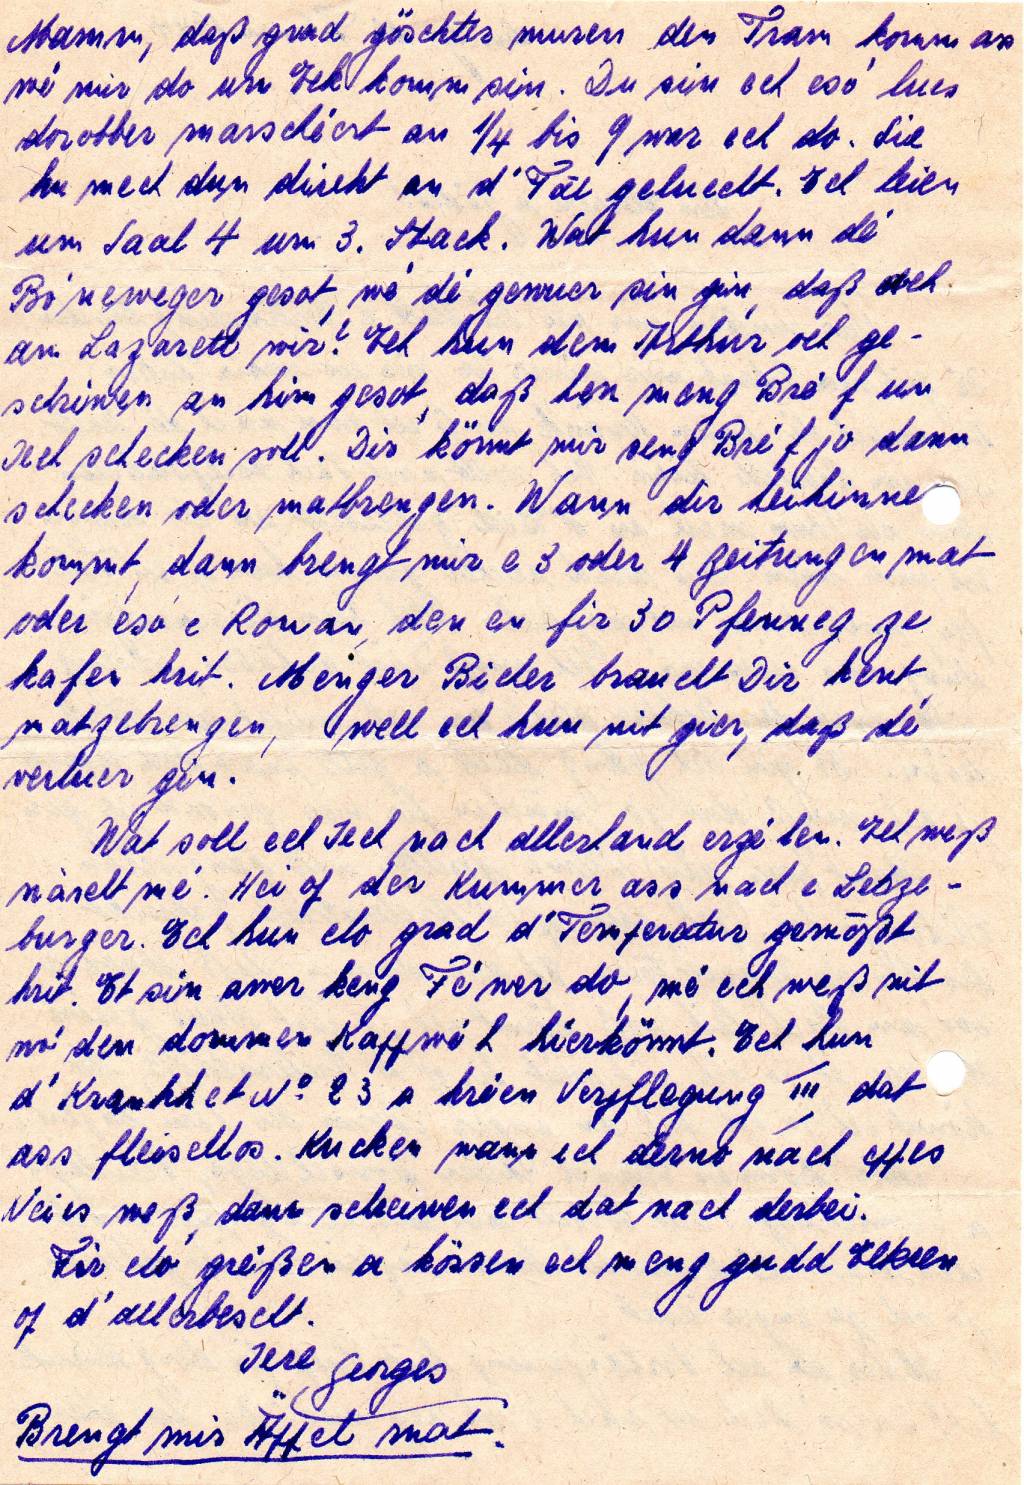 Mamm, daß grad göschter muren den Tram komm ass
wé mir do um Eck komm sin. Du sin ech esó lues
doróbber marschéert an 1/4 bis 9 war ech do. Sie
hu mech dun direkt an d'Fäl geluecht. Ech leien
um Saal 4 um 3. Stack. Wat hun dann dé
Bó'neweger gesot, wé dé gewuer sin gin, daß ech
am Lazarett wir? Ech hun dem Arthur och ge-
schriwen an him gesot, daß hen meng Bréf un
Iech schecken soll. Dir könnt mir seng Bréf jo dann
schecken oder matbrengen. Wann dir heihinne
kommt, dann brengt mir e 3 oder 4 Zeitungen mat
oder esó e Roman, den en fir 30 Pfenneg ze
kafen krit. Menger Bicher braucht Dir kent
matzebrengen, well ech hun nit gier, daß dé
verluer gin.
Wat soll ech Iech nach allerland erzélen. Ech weß
näscht mé. Hei of der Kummer ass nach e Letze-
burger. Ech hun elo grad d'Temperatur gemößt
krit. Et sin awer keng Féwer do, mé ech weß nit
wó den dommen Kappwéh hierkönnt. Ech hun
d'Krankhet No 23 a kréien Verpflegung III, dat
ass fleischlos. Kucken wann ech derno nach eppes
Neies weß, dann schreiwen ech dat nach derbei.
Fir eló gréißen a kössen ech meng gudd Elteren
of d'allerbescht.
Iere Georges
Brengt mir Äppel mat.